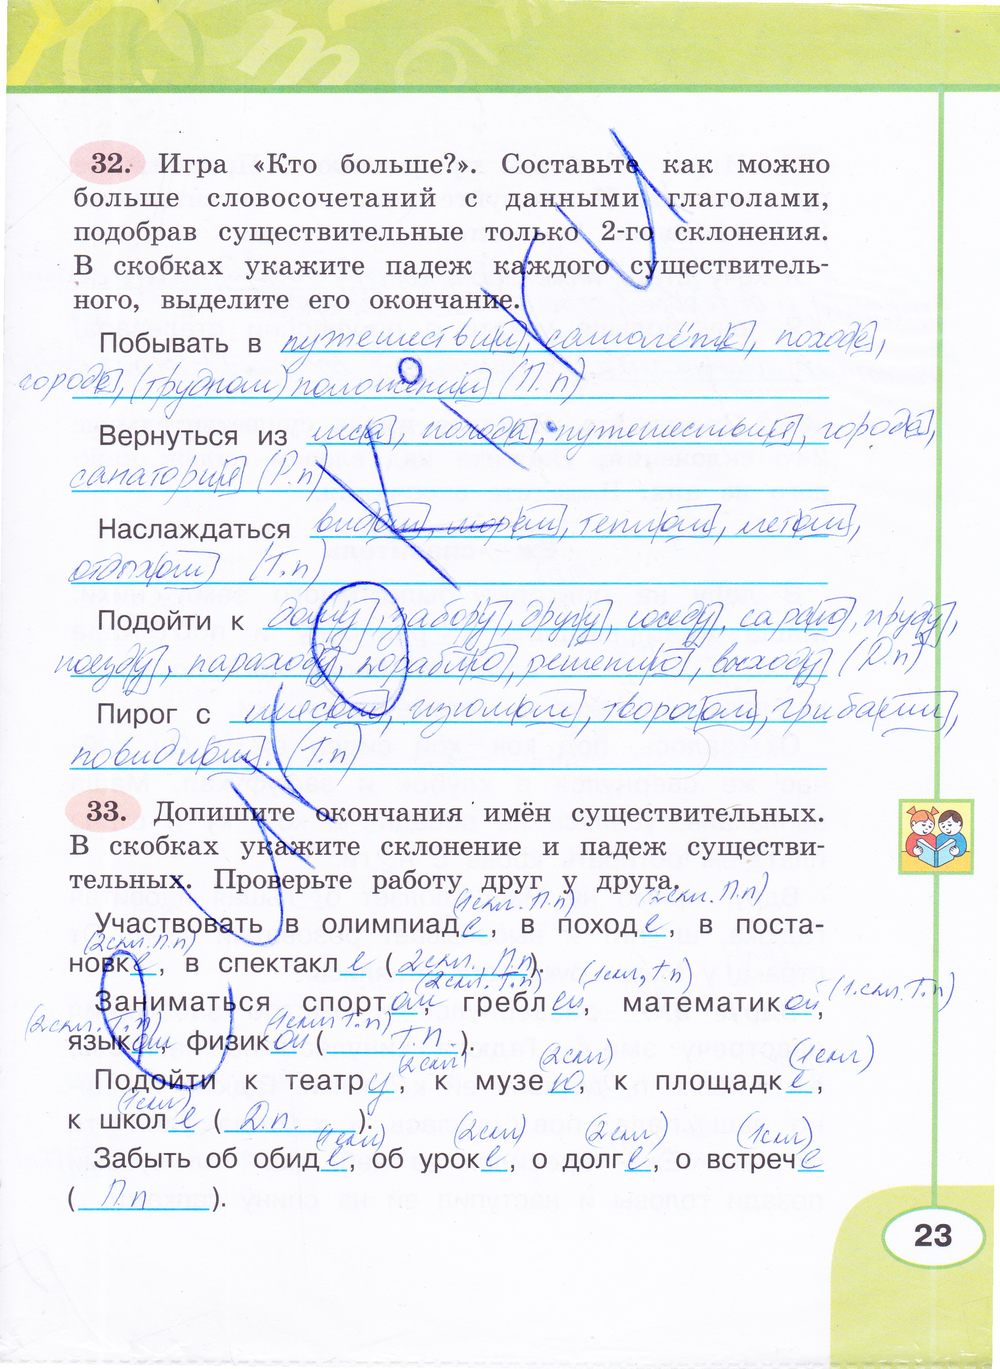 32. Игра «Кто больше?». Составьте как можно
больше словосочетаний с данными глаголами,
подобрав существительные только 2-го склонения.
В скобках укажите падеж каждого существитель-
ного, выделите его окончание.
Побывать в путешествии, самолёте, походе,
городе, (трудном) положении (П.п)
Вернуться из леса, похода, путешествия, города,
санатория (Р.п)
Наслаждаться видом, морем, теплом, летом,
отдыхом (Т.п)
Подойти к дому, забору, другу, соседу, сараю, пруду,
поезду, пароходу, кораблю, решению, восходу (Д.п)
Пирог с мясом, изюмом, творогом, грибами,
повидлом. (Т.п)
33. Допишите окончания имён существительных.
В скобках укажите склонение и падеж существи-
тельных. Проверьте работу друг у друга.
(1скл. П.п) (2скл. П.п)
Участвовать в олимпиаде, в походе, в поста-
(2скл. П.п)
новке, в спектакле (2скл. П.п).
(2скл. Т.п) (1скл, Т.п)
Заниматься спортом, греблей, математикой, (1.скл. Т.п)
(2скл. Т.п) (1скл Т.п)
языком, физикой (Т.п.).
2скл (2скл) (1скл)
Подойти к театру, к музею, к площадке,
(1скл)
к школе (Д.п).
(1скл) (2скл) (2скл) (1скл)
Забыть об обиде, об уроке, о долге, о встрече
(П.п).
23